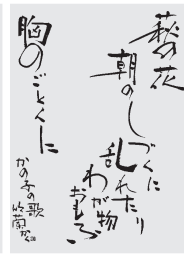 萩の花
朝のしづくに
乱れたり
わが物
おもふ
胸のごとくに
かの子の歌